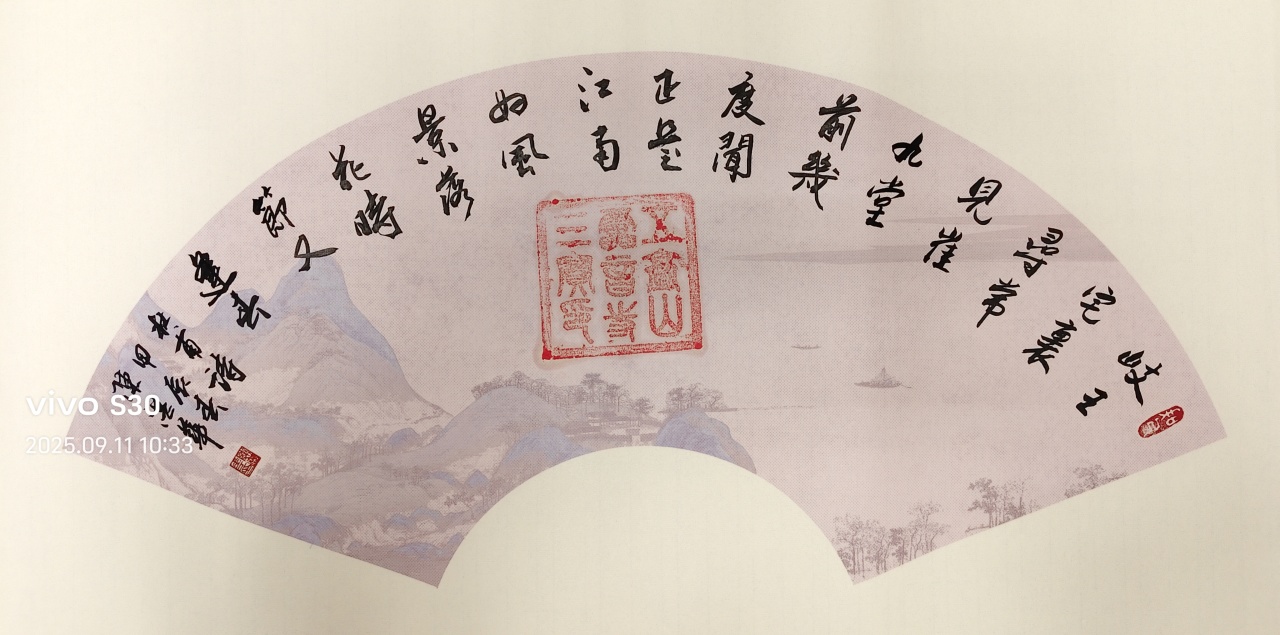 岐王
宅裏
尋常
見崔
九堂
前幾
度聞
正是
江南
好風
景落
花時
節又
逢君
杜甫詩
甲辰春
vivo S30
2025.09.11 10:33